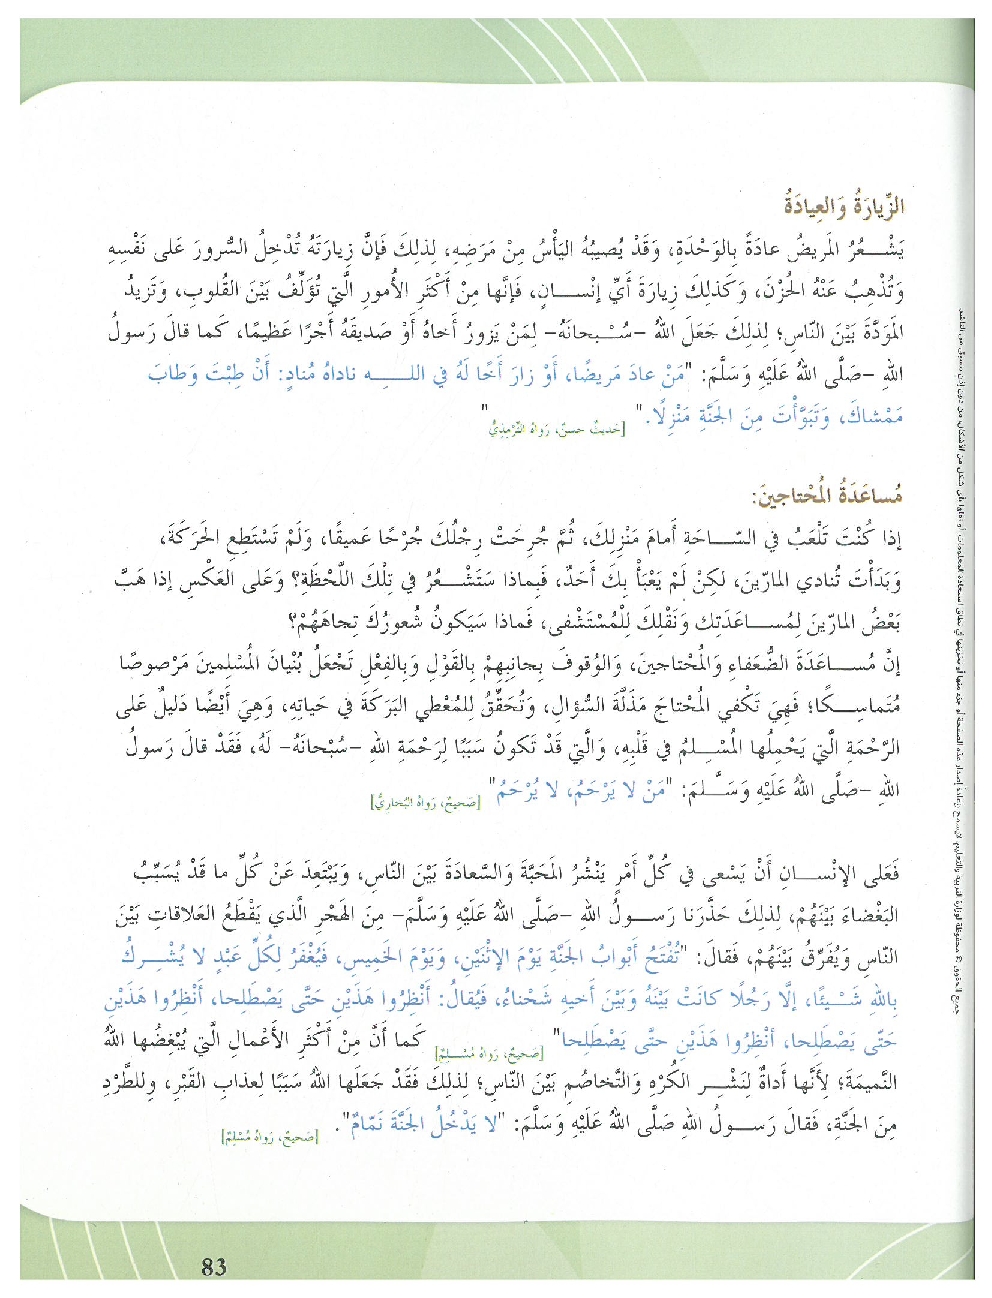 الزِّيارَةُ وَالعِيادَةُ
يَشْـــعُرُ المَريضُ عادَةً بِالوَحْدَةِ، وَقَدْ يُصيبُهُ اليَأْسُ مِنْ مَرَضِهِ، لِذلِكَ فَإِنَّ زِيارَتَهُ تُدْخِلُ السُّرورَ عَلى نَفْسِهِ
وَتُذْهِبُ عَنْهُ الحُزْنَ، وَكَذلِكَ زِيارَةُ أَيِّ إِنْســـانٍ، فَإِنَّها مِنْ أَكْثَرِ الأُمورِ الَّتي تُؤَلِّفُ بَيْنَ القُلوبِ، وَتَزيدُ
المَوَدَّةَ بَيْنَ النّاسِ؛ لِذلِكَ جَعَلَ اللهُ -سُـــبْحانَهُ- لِمَنْ يَزورُ أَخاهُ أَوْ صَديقَهُ أَجْرًا عَظيمًا، كَما قالَ رَسولُ
اللهِ -صَلَّى اللهُ عَلَيْهِ وَسَلَّمَ: "مَنْ عادَ مَريضًا، أَوْ زارَ أَخًا لَهُ في اللـــهِ ناداهُ مُنادٍ: أَنْ طِبْتَ وَطابَ
مَمْشاكَ، وَتَبَوَّأْتَ مِنَ الجَنَّةِ مَنْزِلًا." [حَديثٌ حَسَنٌ، رَواهُ التِّرْمِذِيُّ] "
مُساعَدَةُ المُحْتاجينَ:
إِذا كُنْتَ تَلْعَبُ في السّـــاحَةِ أَمامَ مَنْزِلِكَ، ثُمَّ جُرِحَتْ رِجْلُكَ جُرْحًا عَميقًا، وَلَمْ تَسْتَطِعِ الحَرَكَةَ،
وَبَدَأْتَ تُنادي المارّينَ، لكِنْ لَمْ يَعْبَأْ بِكَ أَحَدٌ، فَبِماذا سَتَشْـــعُرُ في تِلْكَ اللَّحْظَةِ؟ وَعَلى العَكْسِ إِذا هَبَّ
بَعْضُ المارّينَ لِمُســـاعَدَتِكَ وَنَقْلِكَ لِلْمُسْتَشْفى، فَماذا سَيَكونُ شُعورُكَ تِجاهَهُمْ؟
إِنَّ مُســـاعَدَةَ الضُّعَفاءِ وَالمُحْتاجينَ، وَالوُقوفَ بِجانِبِهِمْ بِالقَوْلِ وَبِالفِعْلِ تَجْعَلُ بُنْيانَ المُسْلِمينَ مَرْصوصًا
مُتَماسِـــكًا؛ فَهِيَ تَكْفي المُحْتاجَ مَذَلَّةَ السُّؤالِ، وَتُحَقِّقُ لِلمُعْطي البَرَكَةَ في حَياتِهِ، وَهِيَ أَيْضًا دَليلٌ عَلى
الرَّحْمَةِ الَّتي يَحْمِلُها المُسْـــلِمُ في قَلْبِهِ، وَالَّتي قَدْ تَكونُ سَبَبًا لِرَحْمَةِ اللهِ -سُبْحانَهُ- لَهُ، فَقَدْ قالَ رَسولُ
اللهِ -صَلَّى اللهُ عَلَيْهِ وَسَـــلَّمَ: "مَنْ لا يَرْحَمُ، لا يُرْحَمُ" [صَحيحٌ، رَواهُ البُخارِيُّ]
فَعَلى الإِنْســـانِ أَنْ يَسْعى في كُلِّ أَمْرٍ يَنْشُرُ المَحَبَّةَ وَالسَّعادَةَ بَيْنَ النّاسِ، وَيَبْتَعِدَ عَنْ كُلِّ ما قَدْ يُسَبِّبُ
البَغْضاءَ بَيْنَهُمْ، لِذلِكَ حَذَّرَنا رَســـولُ اللهِ -صَلَّى اللهُ عَلَيْهِ وَسَلَّمَ- مِنَ الهَجْرِ الَّذي يَقْطَعُ العَلاقاتِ بَيْنَ
النّاسِ وَيُفَرِّقُ بَيْنَهُمْ، فَقالَ: "تُفْتَحُ أَبْوابُ الجَنَّةِ يَوْمَ الاِثْنَيْنِ، وَيَوْمَ الخَميسِ، فَيُغْفَرُ لِكُلِّ عَبْدٍ لا يُشْـــرِكُ
بِاللهِ شَـــيْئًا، إِلَّا رَجُلًا كانَتْ بَيْنَهُ وَبَيْنَ أَخيهِ شَحْناءُ، فَيُقالُ: أَنْظِروا هَذَيْنِ حَتَّى يَصْطَلِحا، أَنْظِروا هَذَيْنِ
حَتَّى يَصْطَلِحا، أَنْظِروا هَذَيْنِ حَتَّى يَصْطَلِحا" [صَحيحٌ، رَواهُ مُسْـــلِمٌ] كَما أَنَّ مِنْ أَكْثَرِ الأَعْمالِ الَّتي يُبْغِضُها اللهُ
النَّميمَةَ؛ لِأَنَّها أَداةٌ لِنَشْـــرِ الكُرْهِ وَالتَّخاصُمِ بَيْنَ النّاسِ؛ لِذلِكَ فَقَدْ جَعَلَها اللهُ سَبَبًا لِعَذابِ القَبْرِ، وَلِلطَّرْدِ
مِنَ الجَنَّةِ، فَقالَ رَســـولُ اللهِ صَلَّى اللهُ عَلَيْهِ وَسَلَّمَ: "لا يَدْخُلُ الجَنَّةَ نَمّامٌ". [صَحيحٌ، رَواهُ مُسْلِمٌ]
83